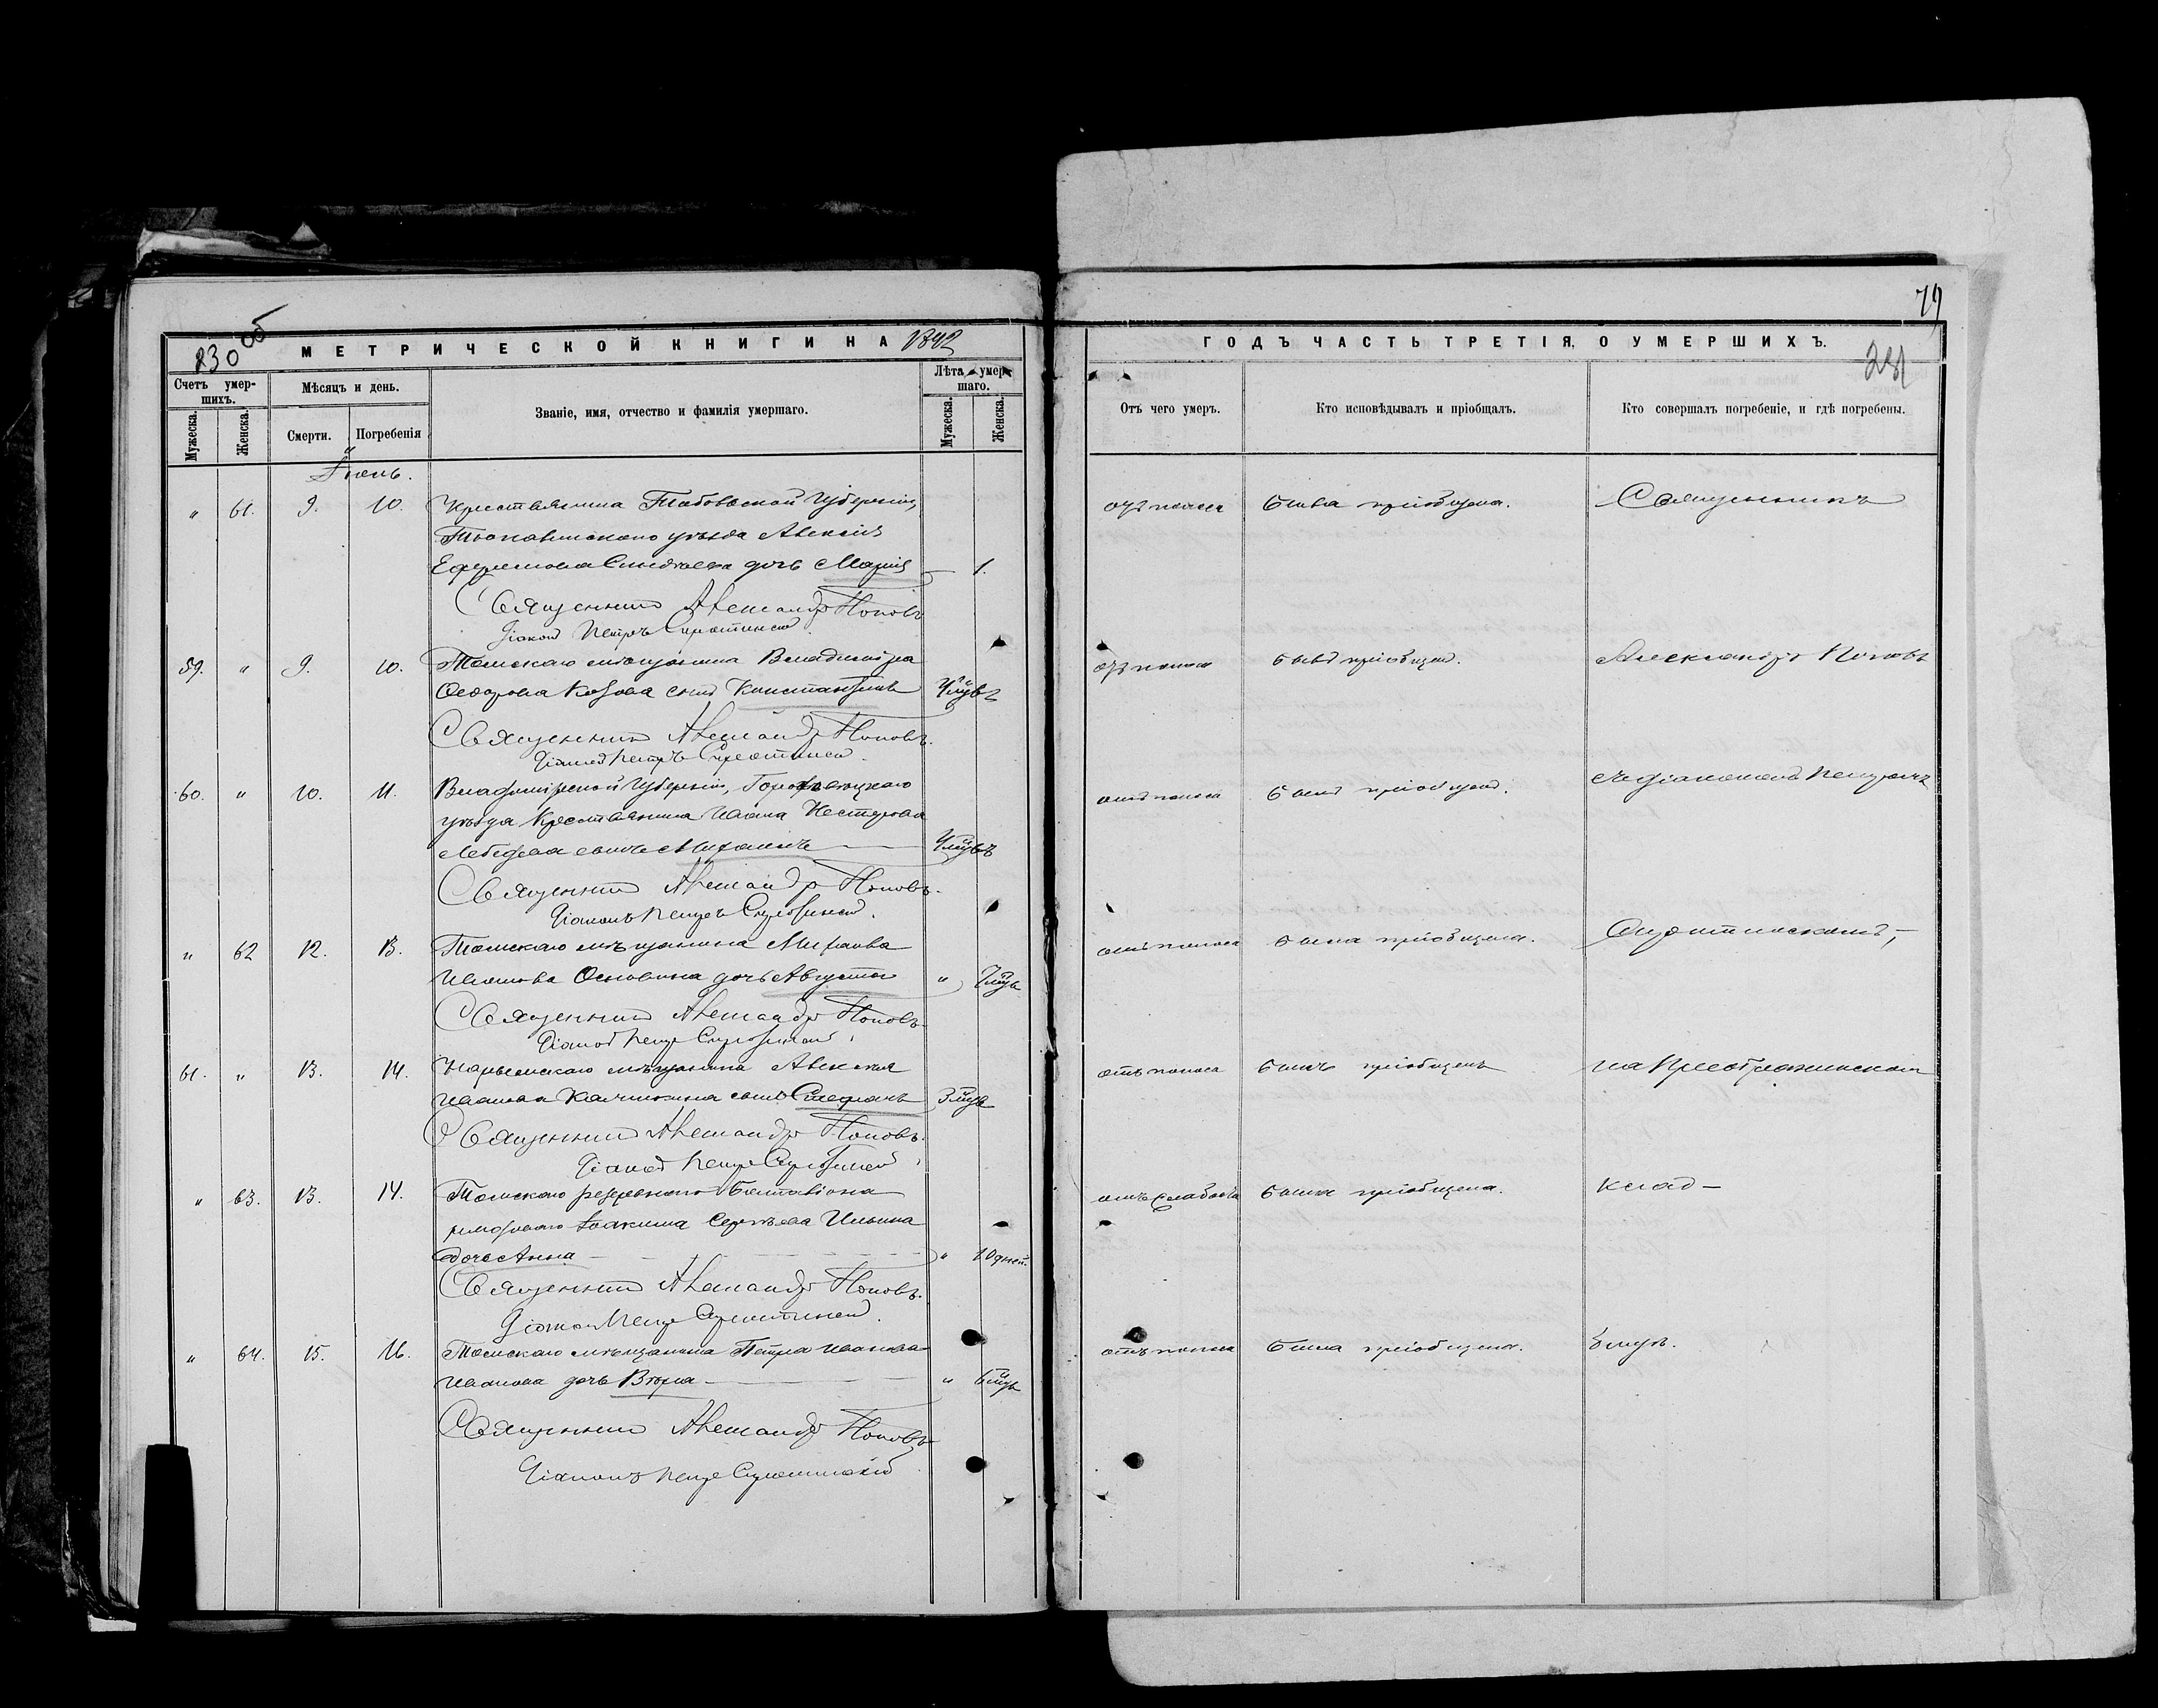 230 об
МЕТРИЧЕСКОЙ КНИГИ НА 1892
Счетъ умершихъ.
Мужеска.
Женска.
Мѣсяцъ и день.
Смерти.
Погребенія
Званіе, имя, отчество и фамилія умершаго.
Лѣта умершаго.
Мужеска.
Женска.
Іюнь.
„ 61. 9. 10. Крестьянина Тобольской губерніи,
Тюкалинскаго уѣзда Алексія
Ефремова дочь Марія — 1.
Священникъ Александръ Поповъ
Діаконъ Петръ Сиротинскій
59. „ 9. 10. Томскаго мѣщанина Владиміра
Ѳедорова Козлова сынъ Константинъ
Священникъ Александръ Поповъ.
Діаконъ Петръ Сиротинскій.
60. „ 10. 11. Владимірской губерніи, Гороховецкаго
уѣзда крестьянина Ивана Нестерова
Лебедева сынъ Михаилъ —
Священникъ Александръ Поповъ.
Діаконъ Петръ Сиротинскій.
„ 62 12. 13. Томскаго мѣщанина Михаила
Иванова дочь Августа „
Священникъ Александръ Поповъ.
Діаконъ Петръ Сиротинскій
61. „ 13. 14. Нарымскаго мѣщанина Алексія
Иванова сынъ Стефанъ 3 мцв
Священникъ Александръ Поповъ.
Діаконъ Петръ Сиротинскій
„ 63. 13. 14. Томскаго резервнаго баталіона
рядоваго Іоакима Сергѣева Ильина
дочь Анна — „ 10 дней.
Священникъ Александръ Поповъ.
Діаконъ Петръ Сиротинскій.
„ 64. 15. 16. Томскаго мѣщанина Петра Иванова
Иванова дочь Вѣра — „ 6 мцв
Священникъ Александръ Поповъ
Діаконъ Петръ Сиротинскій
79
ГОДЪ ЧАСТЬ ТРЕТІЯ, О УМЕРШИХЪ.
231
Отъ чего умеръ.
Кто исповѣдывалъ и пріобщалъ.
Кто совершалъ погребеніе, и гдѣ погребены.
отъ поноса была пріобщена. Священникъ
отъ поноса былъ пріобщенъ. Александръ Поповъ
отъ поноса былъ пріобщенъ. съ діакономъ Петромъ
отъ поноса была пріобщена. Сиротинскимъ,
отъ поноса былъ пріобщенъ на Преображенскомъ
отъ слабости была пріобщена. клад-
отъ поноса была пріобщена. бищѣ.